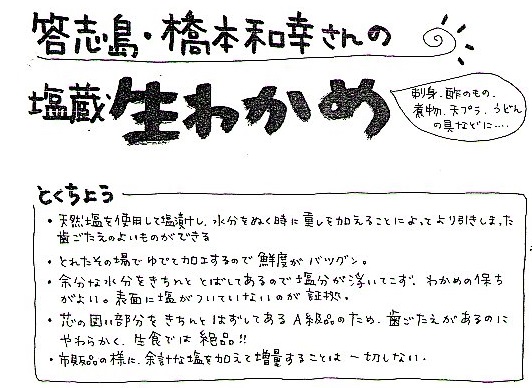 答志島・橋本和幸さんの
塩蔵 生わかめ
刺身．酢のもの．
煮物．天プラ．うどん
の具などに‥‥
とくちょう
・天然塩を使用して塩漬けし、水分をぬく時に重しを加えることによってより引きしまった
歯ごたえのよいものができる
・とれたその場でゆでて加工するので鮮度がバツグン。
・余分な水分をきちんととばしてあるので塩分が浮いてこず、わかめの保ち
がよい。表面に塩がついていないのが証拠。
・芯の固い部分をきちんとはずしてあるA級品のため、歯ごたえがあるのに
やわらかく、生食では絶品!!
・市販品の様に、余計な塩を加えて増量することは一切しない．